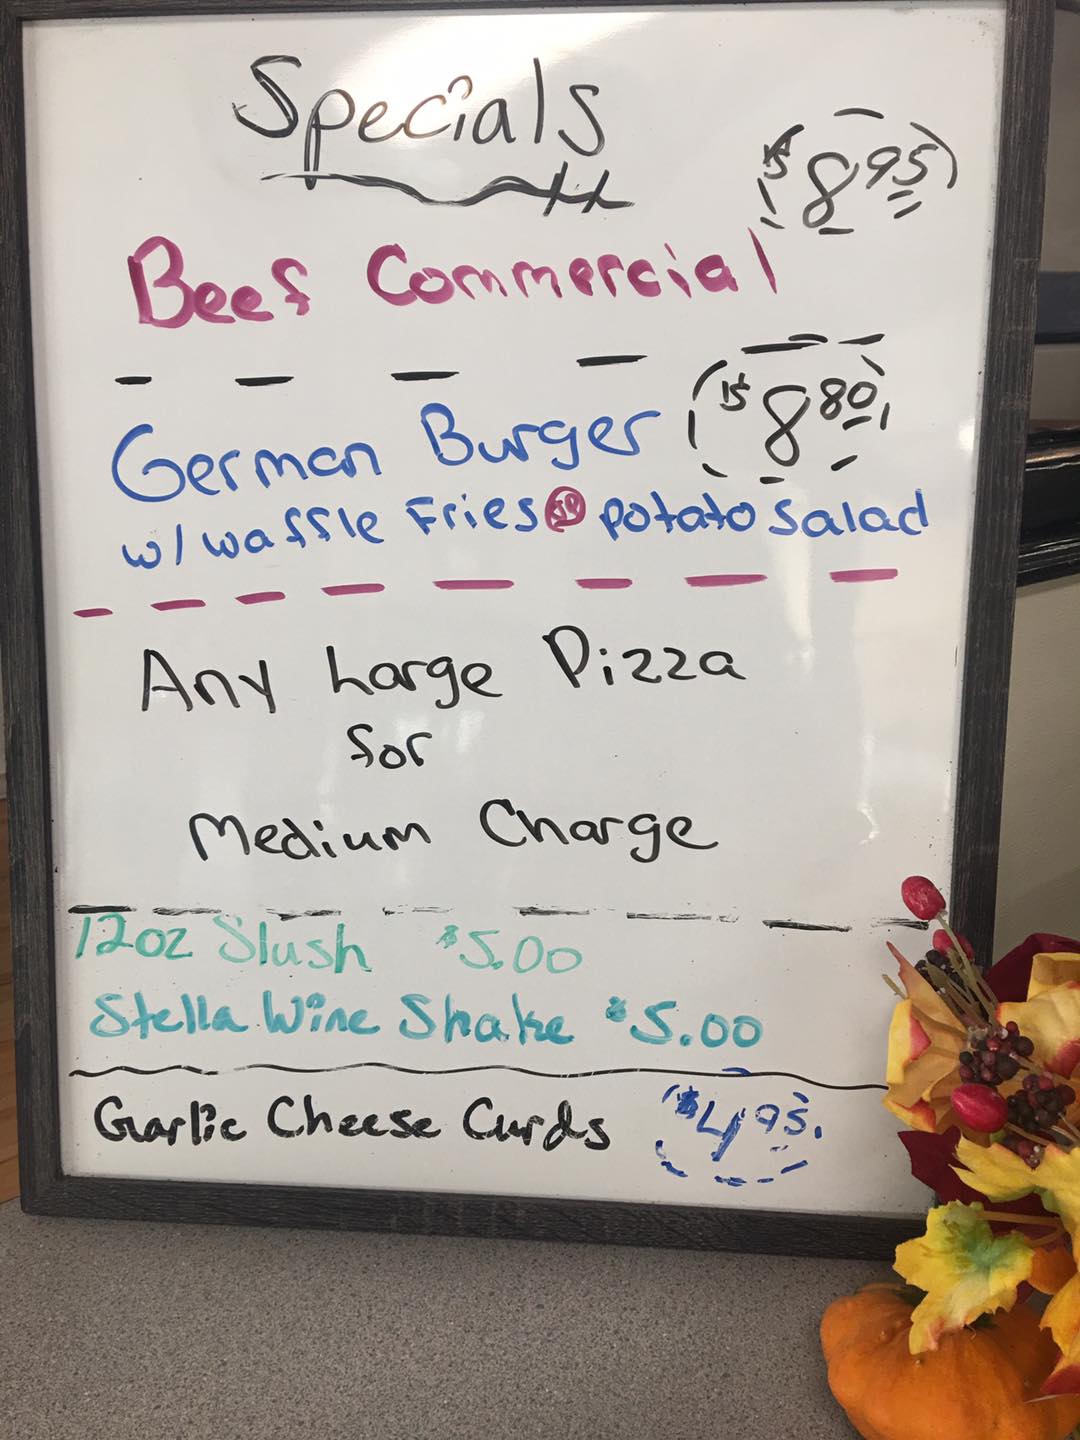 Specials
$8 95
Beef Commercial
German Burger $8 80
w/ waffle Fries potato Salad
Any Large Pizza
for
Medium Charge
12oz Slush $5.00
Stella Wine Shake $5.00
Garlic Cheese Curds $4 95.